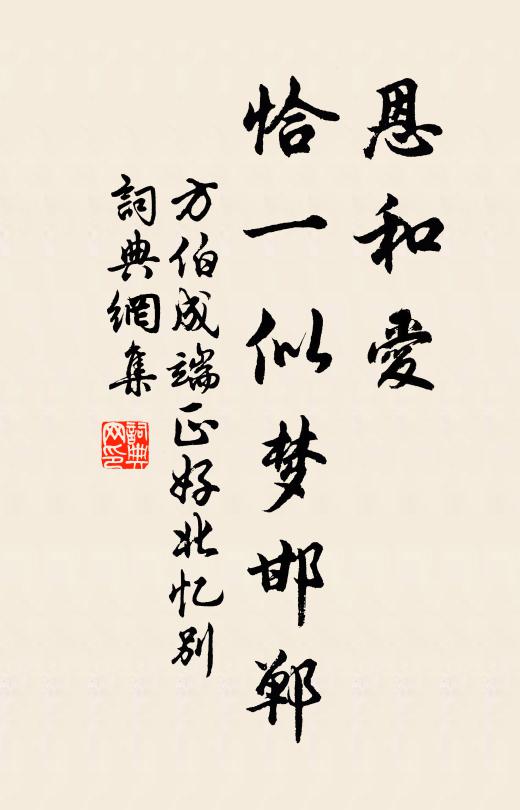 恩和愛
恰一似梦邯鄲
方伯成端正好北忆别
詞典網集
詞典网印